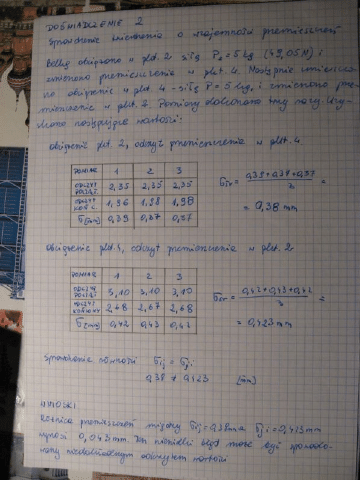 DOŚWIADCZENIE 2
Sprawdzenie twierdzenia o wzajemności przemieszczeń
Belkę obciążono w pkt. 2 siłą P₂ = 5 kg (49,05N) i
zmierzono przemieszczenia w pkt 4. Następnie zmienio-
no obciążenie w pkt 4 - siłą P = 5 kg, i zmierzono prze-
mieszczenie w pkt. 2. Pomiary dokonano trzy razy. Uzy-
skano następujące wartości:
Obciążenie pkt. 2, odczyt przemieszczenia w pkt. 4
POMIAR 1 2 3
ODCZYT POCZĄT. 2,35 2,35 2,35
ODCZYT KOŃC. 1,96 1,98 1,98
δ [mm] 0,39 0,37 0,37
δśr = (0,39+0,38+0,37)/3 =
= 0,38 mm
obciążenie pkt. 4, odczyt przemieszczenia w pkt. 2
POMIAR 1 2 3
ODCZYT POCZĄT. 3,10 3,10 3,10
ODCZYT KOŃCOWY 2,68 2,67 2,68
δ [mm] 0,42 0,43 0,42
δśr = (0,42+0,43+0,42)/3 =
= 0,423 mm
Sprawdzenie równości δij = δji
0,38 ≠ 0,423 [mm]
WNIOSKI
Różnica przemieszczeń między δij = 0,38mm a δji = 0,423 mm
wynosi 0,043 mm. Ten niewielki błąd może być spowodo-
wany niedokładnym odczytem wartości